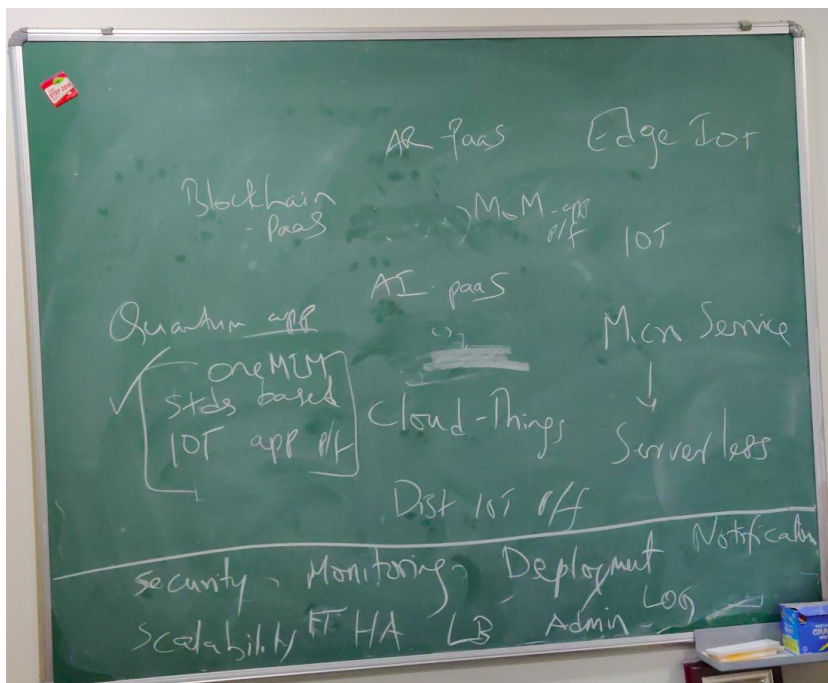 AR PaaS
Edge IoT
Blockchain
- PaaS
MoM-app
p/f
IOT
AI-PaaS
Quantum app
Micro Service
oneM2M
Stds based
IOT app p/f
Cloud-Things
Serverless
Dist IoT p/f
Security, Monitoring, Deployment Notification
Scalability FT HA LB Admin - LOG